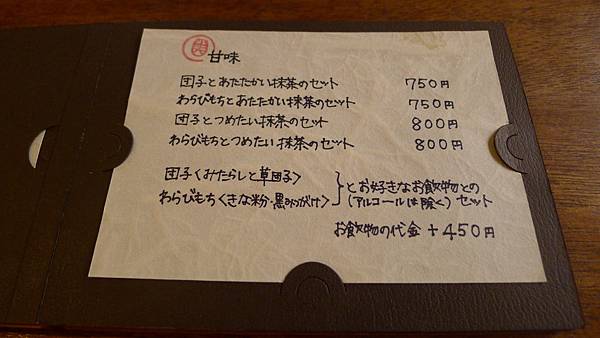 甘味
団子とあたたかい抹茶のセット 750円
わらびもちとあたたかい抹茶のセット 750円
団子とつめたい抹茶のセット 800円
わらびもちとつめたい抹茶のセット 800円
団子〈みたらしと草団子〉
わらびもち〈きな粉・黒みつがけ〉
とお好きなお飲物との
(アルコールは除く) セット
お飲物の代金 + 450円